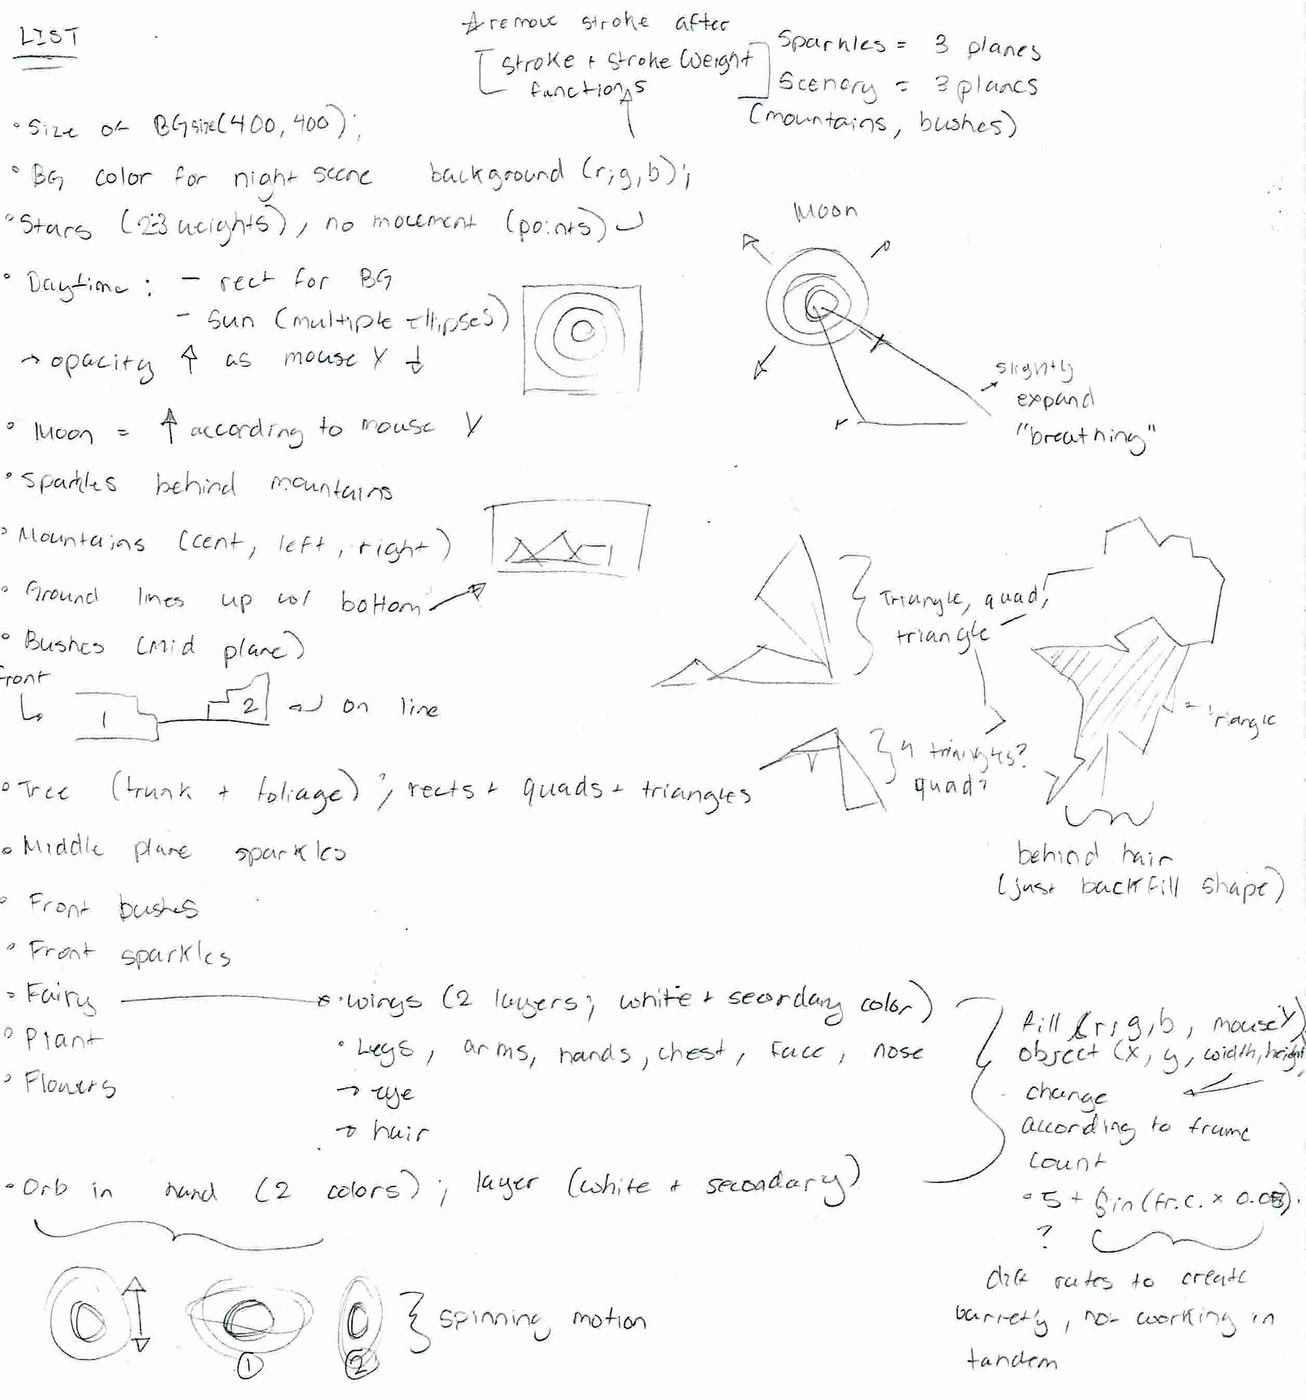 LIST
☆ remove stroke after
[stroke + stroke Weight
functions]
Sparkles = 3 planes
Scenery = 3 planes
(mountains, bushes)
• Size of BG size(400, 400);
• BG color for night scene background (r,g,b);
• Stars (2-3 weights), no movement (points)
• Daytime : - rect for BG
- sun (multiple ellipses)
→ opacity ↑ as mouse Y ↓
Moon
→ slightly
expand
"breathing"
• Moon = ↑ according to mouse Y
• Sparkles behind mountains
• Mountains (cent, left, right)
• Ground lines up w/ bottom
• Bushes (mid plane)
Front
1
2
on line
Triangle, quad,
triangle
triangle
4 triangles?
quad?
• Tree (trunk + foliage) ; rects + quads + triangles
behind hair
(just backfill shape)
• Middle plane sparkles
• Front bushes
• Front sparkles
• Fairy
• wings (2 layers; white + secondary color)
• Plant
• Legs, arms, hands, chest, face, nose
• Flowers
→ eye
→ hair
fill (r,g,b, mouseY)
object (x, y, width, height)
change
according to frame
count
• 5 + sin(fr.c. × 0.05).
?
diff rates to create
variety, not working in
tandem
• Orb in hand (2 colors); layer (white + secondary)
spinning motion
1
2